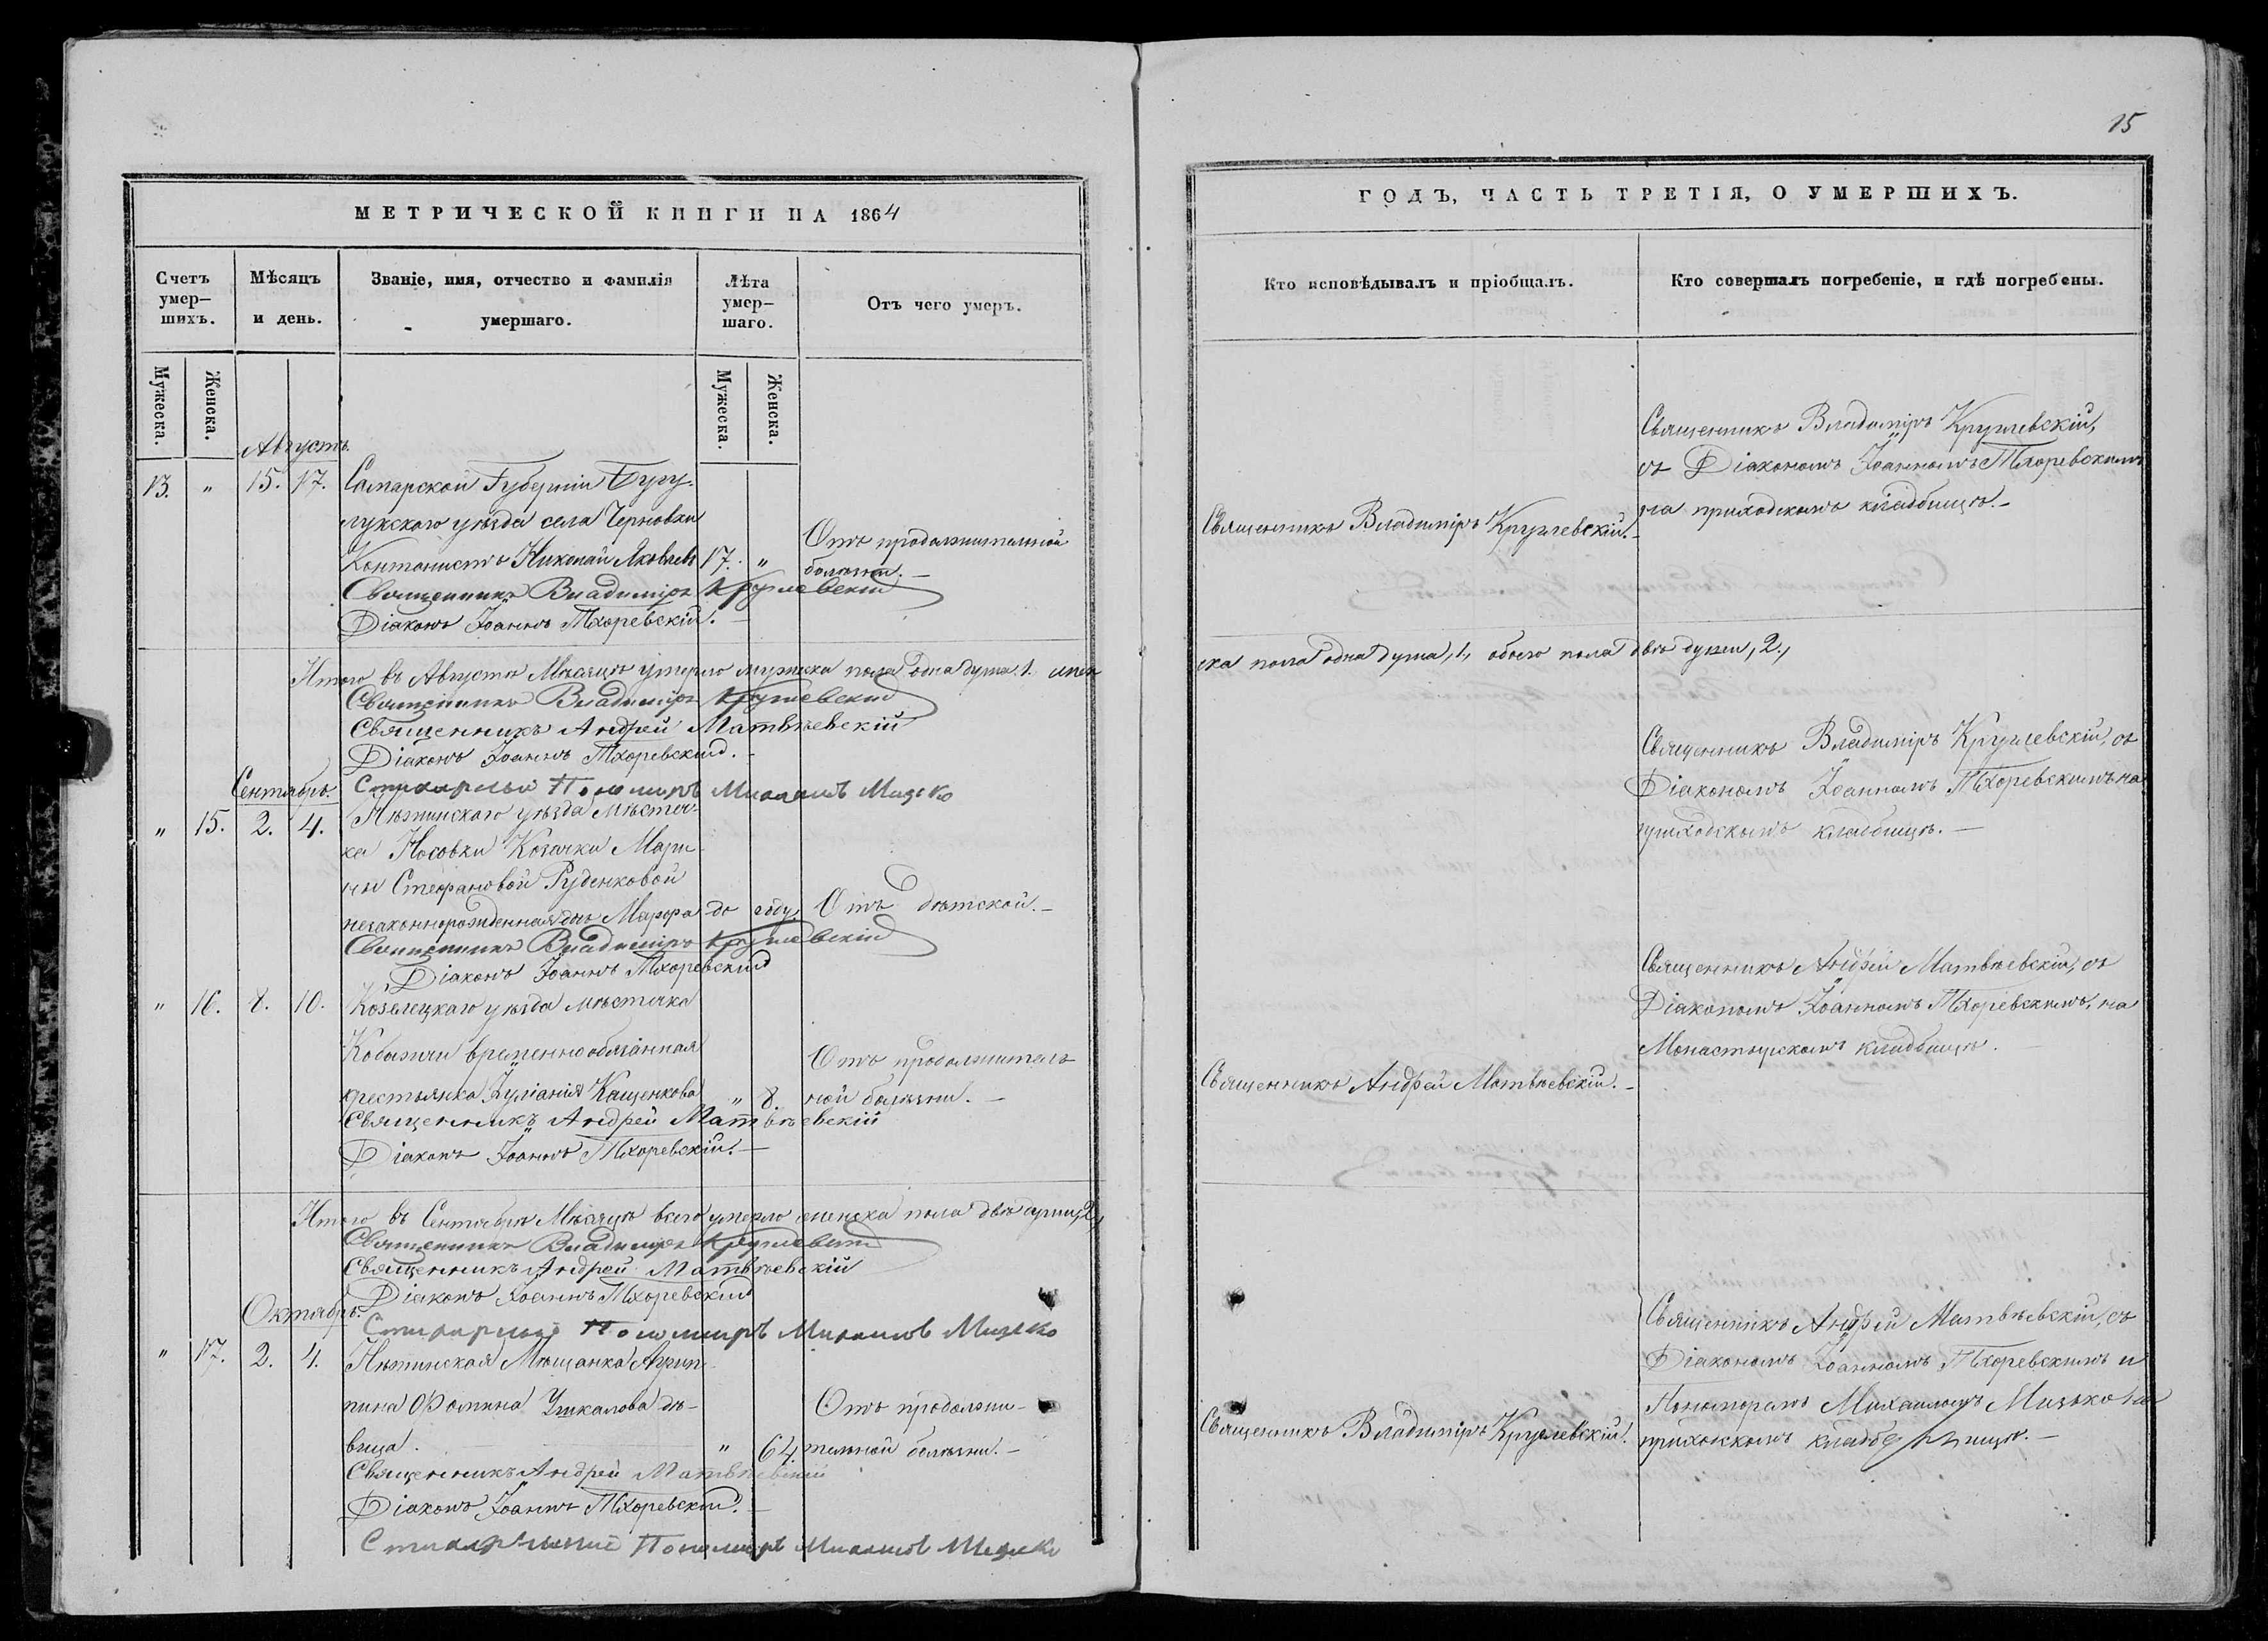 15
МЕТРИЧЕСКОЙ КНИГИ НА 1864
ГОДЪ, ЧАСТЬ ТРЕТІЯ, О УМЕРШИХЪ.
Счетъ умер-шихъ.
Мѣсяцъ и день.
Званіе, имя, отчество и фамилія умершаго.
Лѣта умер-шаго.
Отъ чего умеръ.
Кто исповѣдывалъ и пріобщалъ.
Кто совершалъ погребеніе, и гдѣ погребены.
Мужеска.
Женска.
Мужеска.
Женска.
Августъ.
13. „ 15. 17. Самарской Губерніи Бугу-
лукскаго уѣзда села Черновки
Контонистъ Николай Яковлевъ 17. „
Отъ продолжительной
болѣзни.
Священникъ Владиміръ Круглевскій
Діаконъ Іоаннъ Тхоревскій.
Священникъ Владиміръ Круглевскій.
Священникъ Владиміръ Круглевскій,
съ Діакономъ Іоанномъ Тхоревскимъ
на приходскомъ кладбищѣ.
Итого въ Августѣ Мѣсяцѣ умерло мужеска пола одна душа 1. женс
ска пола одна душа, 1, обоего пола двѣ души, 2,
Священникъ Владиміръ Круглевскій
Священникъ Андрей Матвѣевскій
Діаконъ Іоаннъ Тхоревскій.
Стихарный Пономаръ Михаилъ Мизько
Сентябрь.
„ 15. 2. 4. Нѣжинскаго уѣзда мѣстеч-
ка Носовки Козачки Мари-
ны Стефановой Руденковой
незаконнорожденная дочь Марфа до году. Отъ дѣтской.
Священникъ Владиміръ Круглевскій
Діаконъ Іоаннъ Тхоревскій
Священникъ Владиміръ Круглевскій, съ
Діакономъ Іоанномъ Тхоревскимъ на
приходскомъ кладбищѣ.
„ 16. 8. 10. Козелецкаго уѣзда мѣстечка
Кобыжчи временнообязанная
крестьянка Іуліанія Кащенкова „ 8.
Отъ продолжитель
ной болѣзни.
Священникъ Андрей Матвѣевскій
Діаконъ Іоаннъ Тхоревскій.
Священникъ Андрей Матвѣевскій.
Священникъ Андрей Матвѣевскій, съ
Діакономъ Іоанномъ Тхоревскимъ, на
Монастырскомъ кладбищѣ.
Итого въ Сентябрѣ Мѣсяцѣ всего умерло женска пола двѣ души, 2,
Священникъ Владиміръ Круглевскій
Священникъ Андрей Матвѣевскій
Діаконъ Іоаннъ Тхоревскій
Стихарный Пономаръ Михаилъ Мизько
Октябрь.
„ 17. 2. 4. Нѣжинская Мѣщанка Агрип-
пина Ѳомина Ушкалова дѣ-
вица. „ 64.
Отъ продолжи-
тельной болѣзни.
Священникъ Андрей Матвѣевскій
Діаконъ Іоаннъ Тхоревскій.
Стихарный Пономаръ Михаилъ Мизько
Священникъ Владиміръ Круглевскій.
Священникъ Андрей Матвѣевскій, съ
Діакономъ Іоанномъ Тхоревскимъ и
Пономаремъ Михаиломъ Мизько на
приходскомъ кладбищѣ.